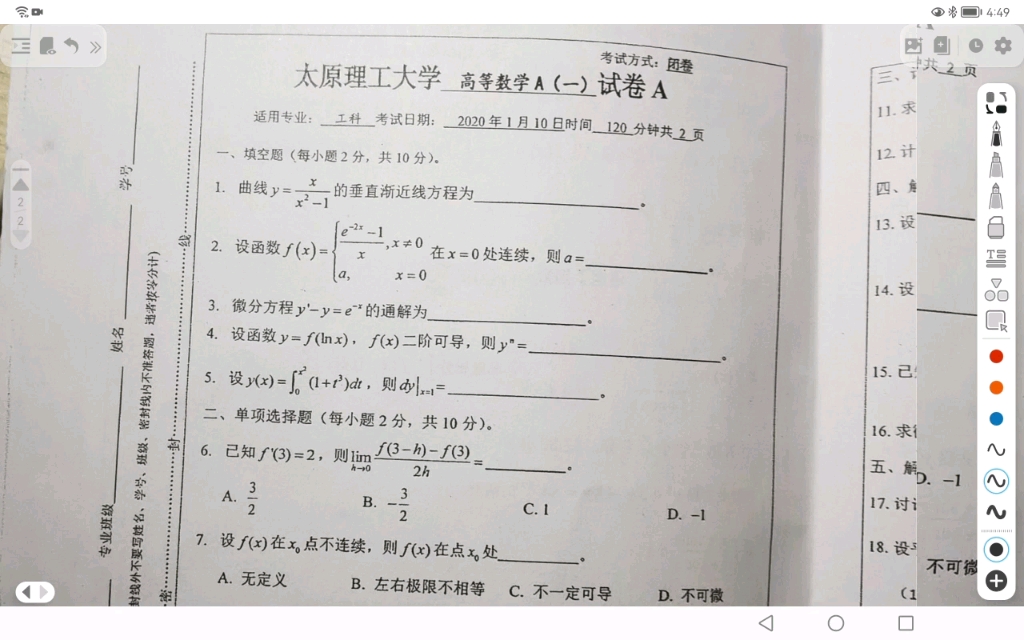 4:49
考试方式：闭卷
太原理工大学 高等数学A（一） 试卷A
适用专业： 工科 考试日期： 2020年1月10日时间 120 分钟共 2 页
一、填空题（每小题2分，共10分）。
1. 曲线 y = x/(x²−1) 的垂直渐近线方程为________。
2. 设函数 f(x) = { (e^{-2x}−1)/x, x≠0; a, x=0 在 x=0 处连续，则 a=________。
3. 微分方程 y'−y=e^{-x} 的通解为________。
4. 设函数 y=f(ln x)，f(x)二阶可导，则 y"=________。
5. 设 y(x)=∫_0^{x²}(1+t³)dt，则 dy|_{x=1}=________。
二、单项选择题（每小题2分，共10分）。
6. 已知 f'(3)=2，则 lim_{h→0} (f(3−h)−f(3))/(2h) =________。
A. 3/2 B. −3/2 C. 1 D. −1
7. 设 f(x) 在 x₀ 点不连续，则 f(x) 在点 x₀ 处________。
A. 无定义 B. 左右极限不相等 C. 不一定可导 D. 不可微
学号
姓名
专业班级
密封线外不要写姓名、学号、班级、密封线内不准答题，违者按零分计）
线
封
密
2
2
共 2 页
三、
11. 求
12. 计
四、
13. 设
14. 设
15. 已
16. 求
五、解
17. 讨
18. 设
（1
D. −1
不可微
T